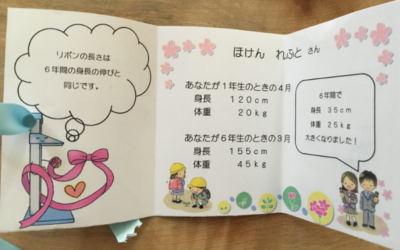 リボンの長さは
６年間の身長の伸びと
同じです。
ほけん　れふと　さん
あなたが１年生のときの４月
身長　１２０ｃｍ
体重　２０ｋｇ
あなたが６年生のときの３月
身長　１５５ｃｍ
体重　４５ｋｇ
６年間で
身長　３５ｃｍ
体重　２５ｋｇ
大きくなりました！